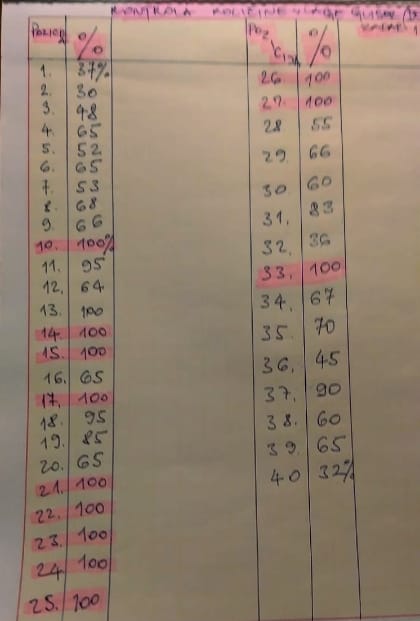 KONTROLA KOLIČINE VLAGE
POZICIJA %
1. 37%
2. 30
3. 48
4. 65
5. 52
6. 65
7. 53
8. 68
9. 66
10. 100%
11. 95
12. 64
13. 100
14. 100
15. 100
16. 65
17. 100
18. 95
19. 85
20. 65
21. 100
22. 100
23. 100
24 100
25. 100
POZICIJA %
26 100
27. 100
28 55
29. 66
30. 60
31. 83
32. 36
33. 100
34. 67
35. 70
36. 45
37. 90
38. 60
39. 65
40 32%